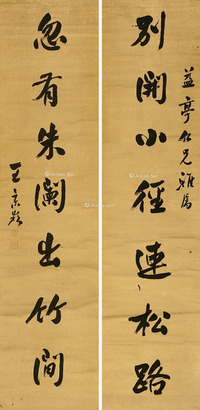 別開小徑連松路
益亭仁兄雅屬
忽有朱闌出竹間
王